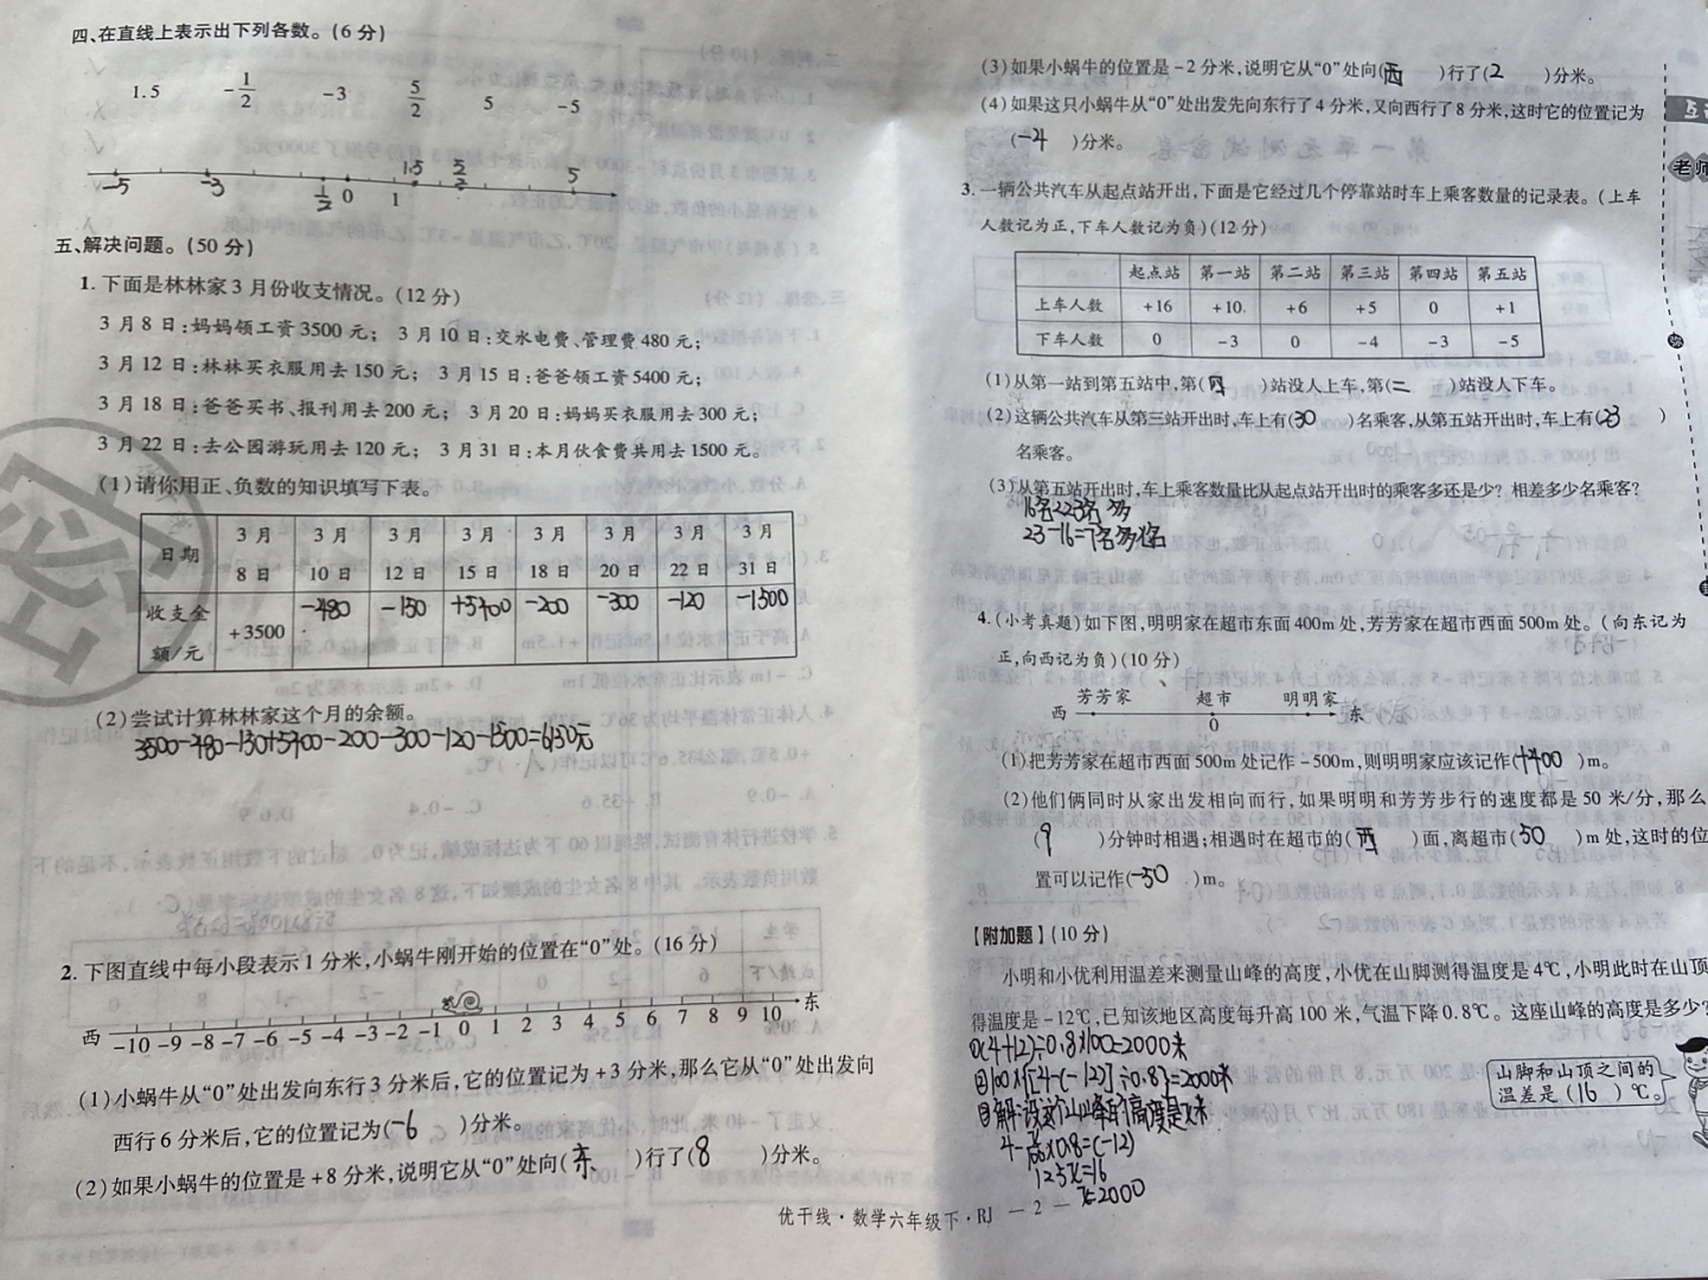 四、在直线上表示出下列各数。(6分)
1.5 -1/2 -3 5/2 5 -5
-5 -3 1/2 0 1 1.5 5/2 5
五、解决问题。(50分)
1.下面是林林家3月份收支情况。(12分)
3月8日:妈妈领工资3500元; 3月10日:交水电费、管理费480元;
3月12日:林林买衣服用去150元; 3月15日:爸爸领工资5400元;
3月18日:爸爸买书、报刊用去200元; 3月20日:妈妈买衣服用去300元;
3月22日:去公园游玩用去120元; 3月31日:本月伙食费共用去1500元。
(1)请你用正、负数的知识填写下表。
日期 3月8日 3月10日 3月12日 3月15日 3月18日 3月20日 3月22日 3月31日
收支金额/元 +3500 -480 -150 +5400 -200 -300 -120 -1500
(2)尝试计算林林家这个月的余额。
3500-480-150+5400-200-300-120-1500=6150元
2.下图直线中每小段表示1分米,小蜗牛刚开始的位置在“0”处。(16分)
西 -10 -9 -8 -7 -6 -5 -4 -3 -2 -1 0 1 2 3 4 5 6 7 8 9 10 东
(1)小蜗牛从“0”处出发向东行3分米后,它的位置记为+3分米,那么它从“0”处出发向
西行6分米后,它的位置记为(-6)分米。
(2)如果小蜗牛的位置是+8分米,说明它从“0”处向(东)行了(8)分米。
(3)如果小蜗牛的位置是-2分米,说明它从“0”处向(西)行了(2)分米。
(4)如果这只小蜗牛从“0”处出发先向东行了4分米,又向西行了8分米,这时它的位置记为
(-4)分米。
3.一辆公共汽车从起点站开出,下面是它经过几个停靠站时车上乘客数量的记录表。(上车
人数记为正,下车人数记为负)(12分)
起点站 第一站 第二站 第三站 第四站 第五站
上车人数 +16 +10 +6 +5 0 +1
下车人数 0 -3 0 -4 -3 -5
(1)从第一站到第五站中,第(四)站没人上车,第(二)站没人下车。
(2)这辆公共汽车从第三站开出时,车上有(30)名乘客,从第五站开出时,车上有(23)
名乘客。
(3)从第五站开出时,车上乘客数量比从起点站开出时的乘客多还是少?相差多少名乘客?
16名<23名 多
23-16=7名
4.(小考真题)如下图,明明家在超市东面400m处,芳芳家在超市西面500m处。(向东记为
正,向西记为负)(10分)
芳芳家 超市 明明家
西 0 东
(1)把芳芳家在超市西面500m处记作-500m,则明明家应该记作(+400)m。
(2)他们俩同时从家出发相向而行,如果明明和芳芳步行的速度都是50米/分,那么
(9)分钟时相遇;相遇时在超市的(西)面,离超市(50)m处,这时的位
置可以记作(-50)m。
【附加题】(10分)
小明和小优利用温差来测量山峰的高度,小优在山脚测得温度是4℃,小明此时在山顶
得温度是-12℃,已知该地区高度每升高100米,气温下降0.8℃。这座山峰的高度是多少?
①(4+12)÷0.8×100=2000米
②100×{[4-(-12)]÷0.8}=2000米
③解:设这个山峰的高度是x米
4-x/100×0.8=(-12)
125x=16
x=2000
山脚和山顶之间的
温差是(16)℃。
优干线·数学六年级下·RJ — 2 —
老师